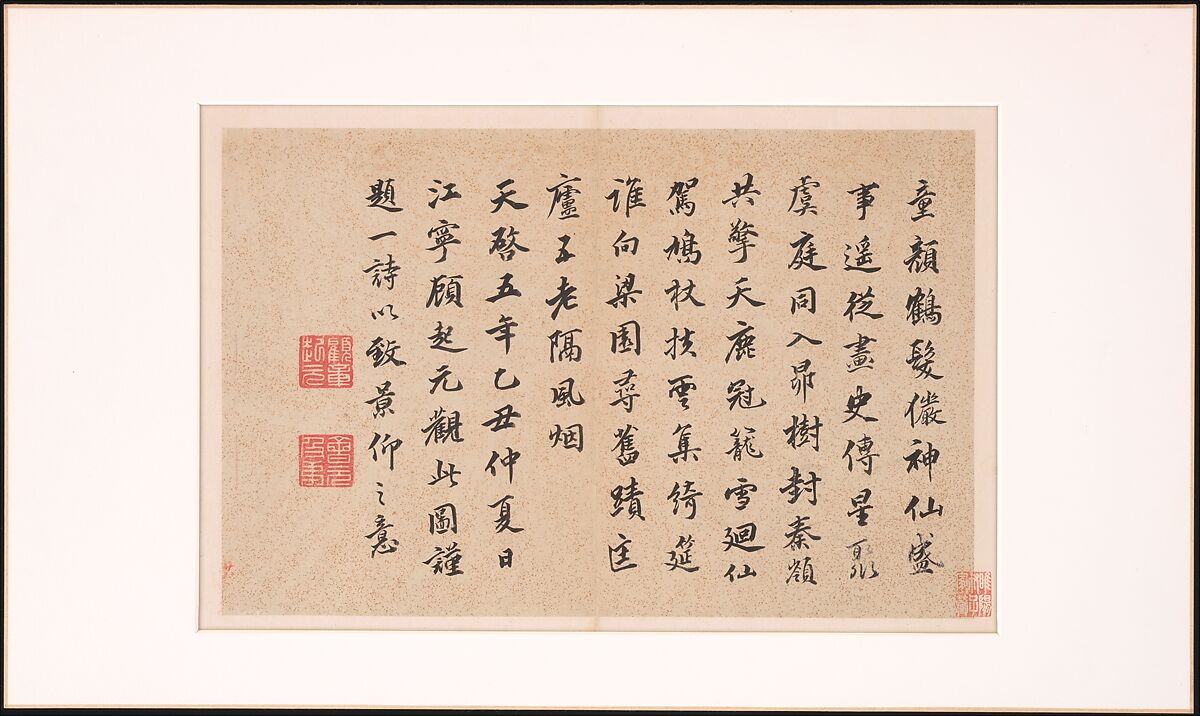 童顏鶴髮儼神仙盛
事遥從畫史傳星聚
虞庭同入昴樹封秦嶺
共擎天鹿冠籠雪廻仙
駕鳩杖扶雲集綺筵
誰向梁園尋舊蹟匡
廬五老隔風烟
天啓五年乙丑仲夏日
江寧顧起元觀此圖謹
題一詩以致景仰之意
顧起元